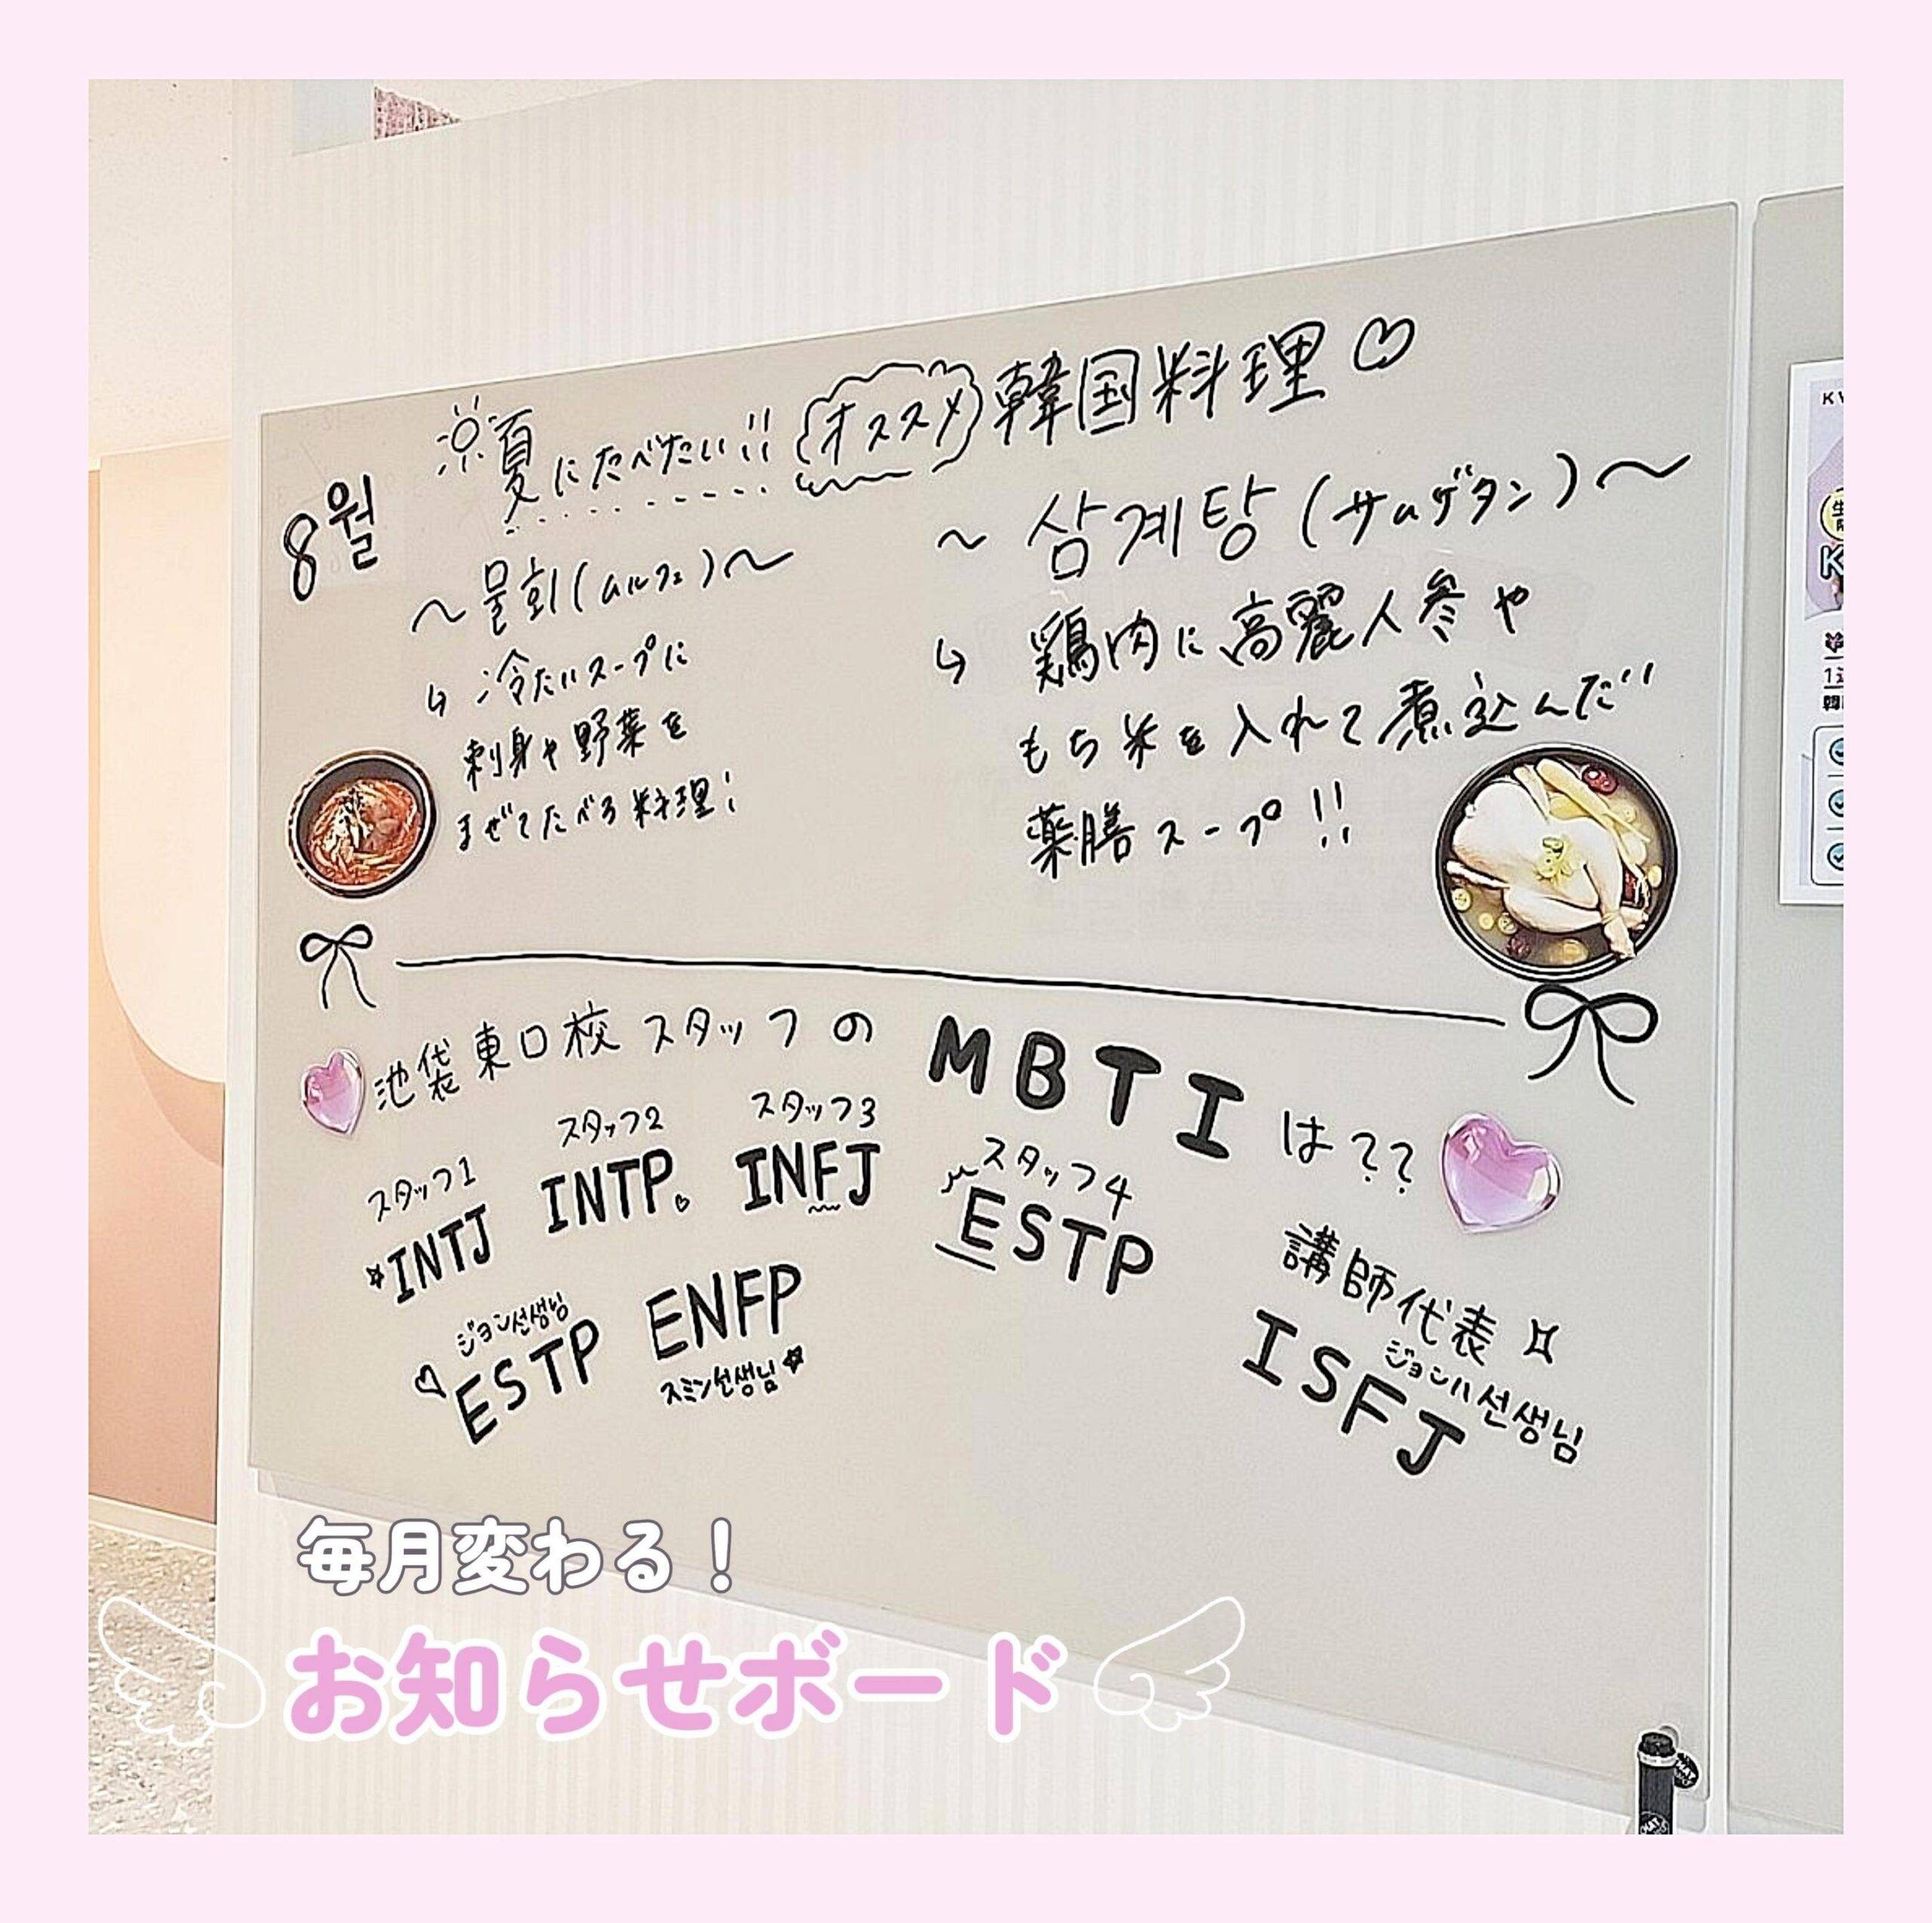 8월
夏にたべたい!! オススメ 韓国料理♡
~물회(ムルフェ)~
↳ 冷たいスープに
刺身や野菜を
まぜてたべる料理!
~삼계탕(サムゲタン)~
↳ 鶏肉に高麗人参や
もち米を入れて煮込んだ
薬膳スープ!!
池袋東口校スタッフのMBTIは??
スタッフ1
INTJ
スタッフ2
INTP
スタッフ3
INFJ
スタッフ4
ESTP
ジョン선생님
ESTP
ENFP
スミン선생님
講師代表
ジョンハ선생님
ISFJ
毎月変わる!
お知らせボード